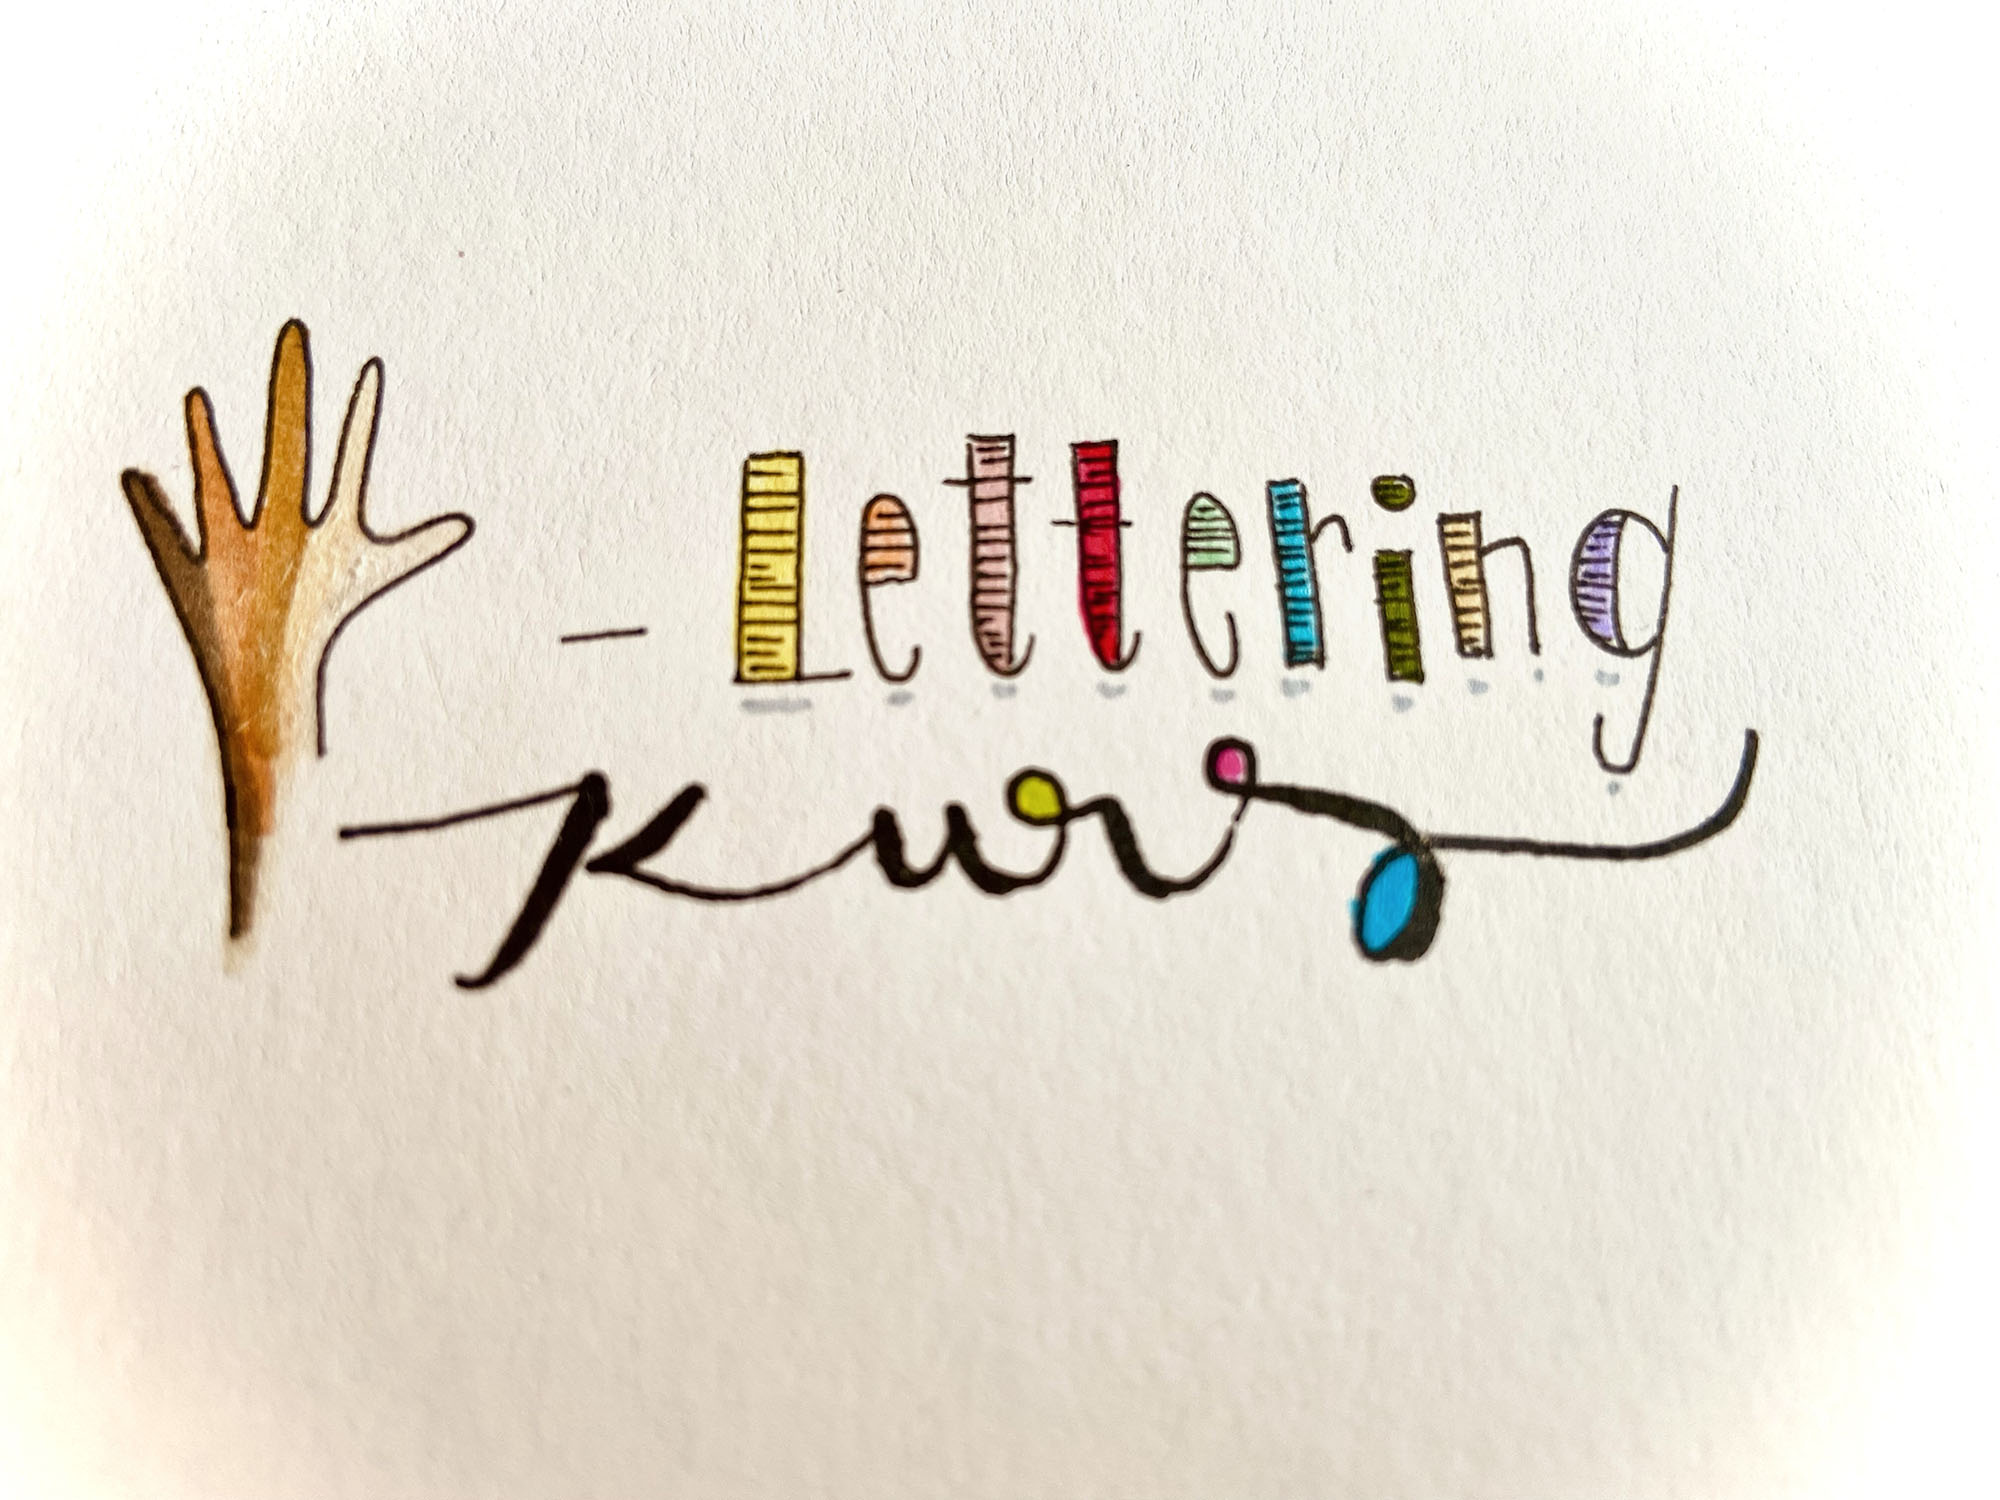 - Lettering
Kurs